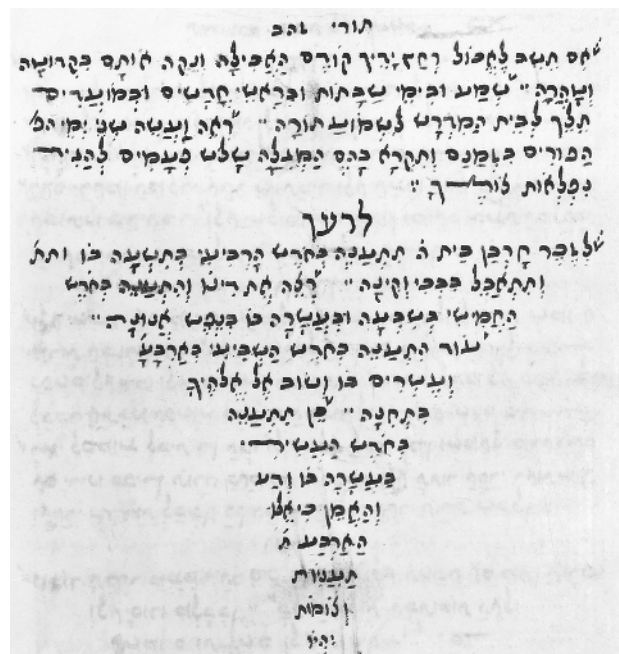 תורי זהב
אם תשב לאכול רחץ ידיך קודם האכילה ונקה אותם בקדושה
וטהרה שמע ובימי שבתות ובראשי חדשים ובמועדים
תלך לבית המדרש לשמוע תורה ראה ועשה שני ימי
הפורים בזמנם ותקרא בהם המגלה שלש פעמים
נפלאות
לרעך
לזכר חרבן בית ה תתענה בחדש הרביעי בתשעה בו
ותתאבל בבכי וקינה והתענה בחדש
החמישי בשבעה ובעשרה בו בנפש
עוד התענה בחדש השביעי בארבעה
ועשרים בו ושוב אל אלהיך
בתחנה כן תתענה
בחדש העשירי
בעשרה בו ודע
והאמן כי אלו
הארבעה
תעניות
וצומות
יהיו